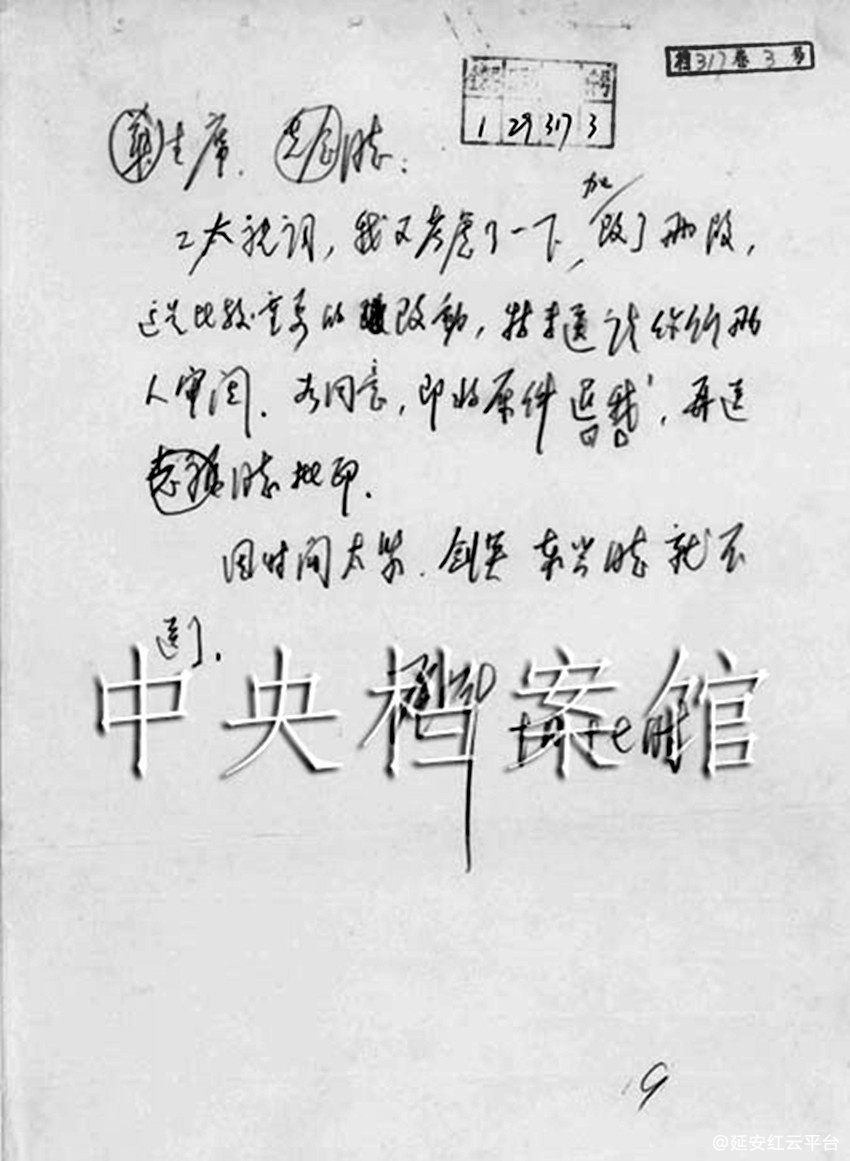 档317卷3号
号
1 29 317 3
华主席、先念同志：
工大祝词，我又考虑了一下，加改了两段，
这是比较重要的改动，特来送请你们两
人审阅。如同意，即将原件退我，再送
同志批印。
因时间太紧，剑英 东兴同志就不
送了。
邓小平
十八 十七时
中央档案馆
19
@延安红云平台